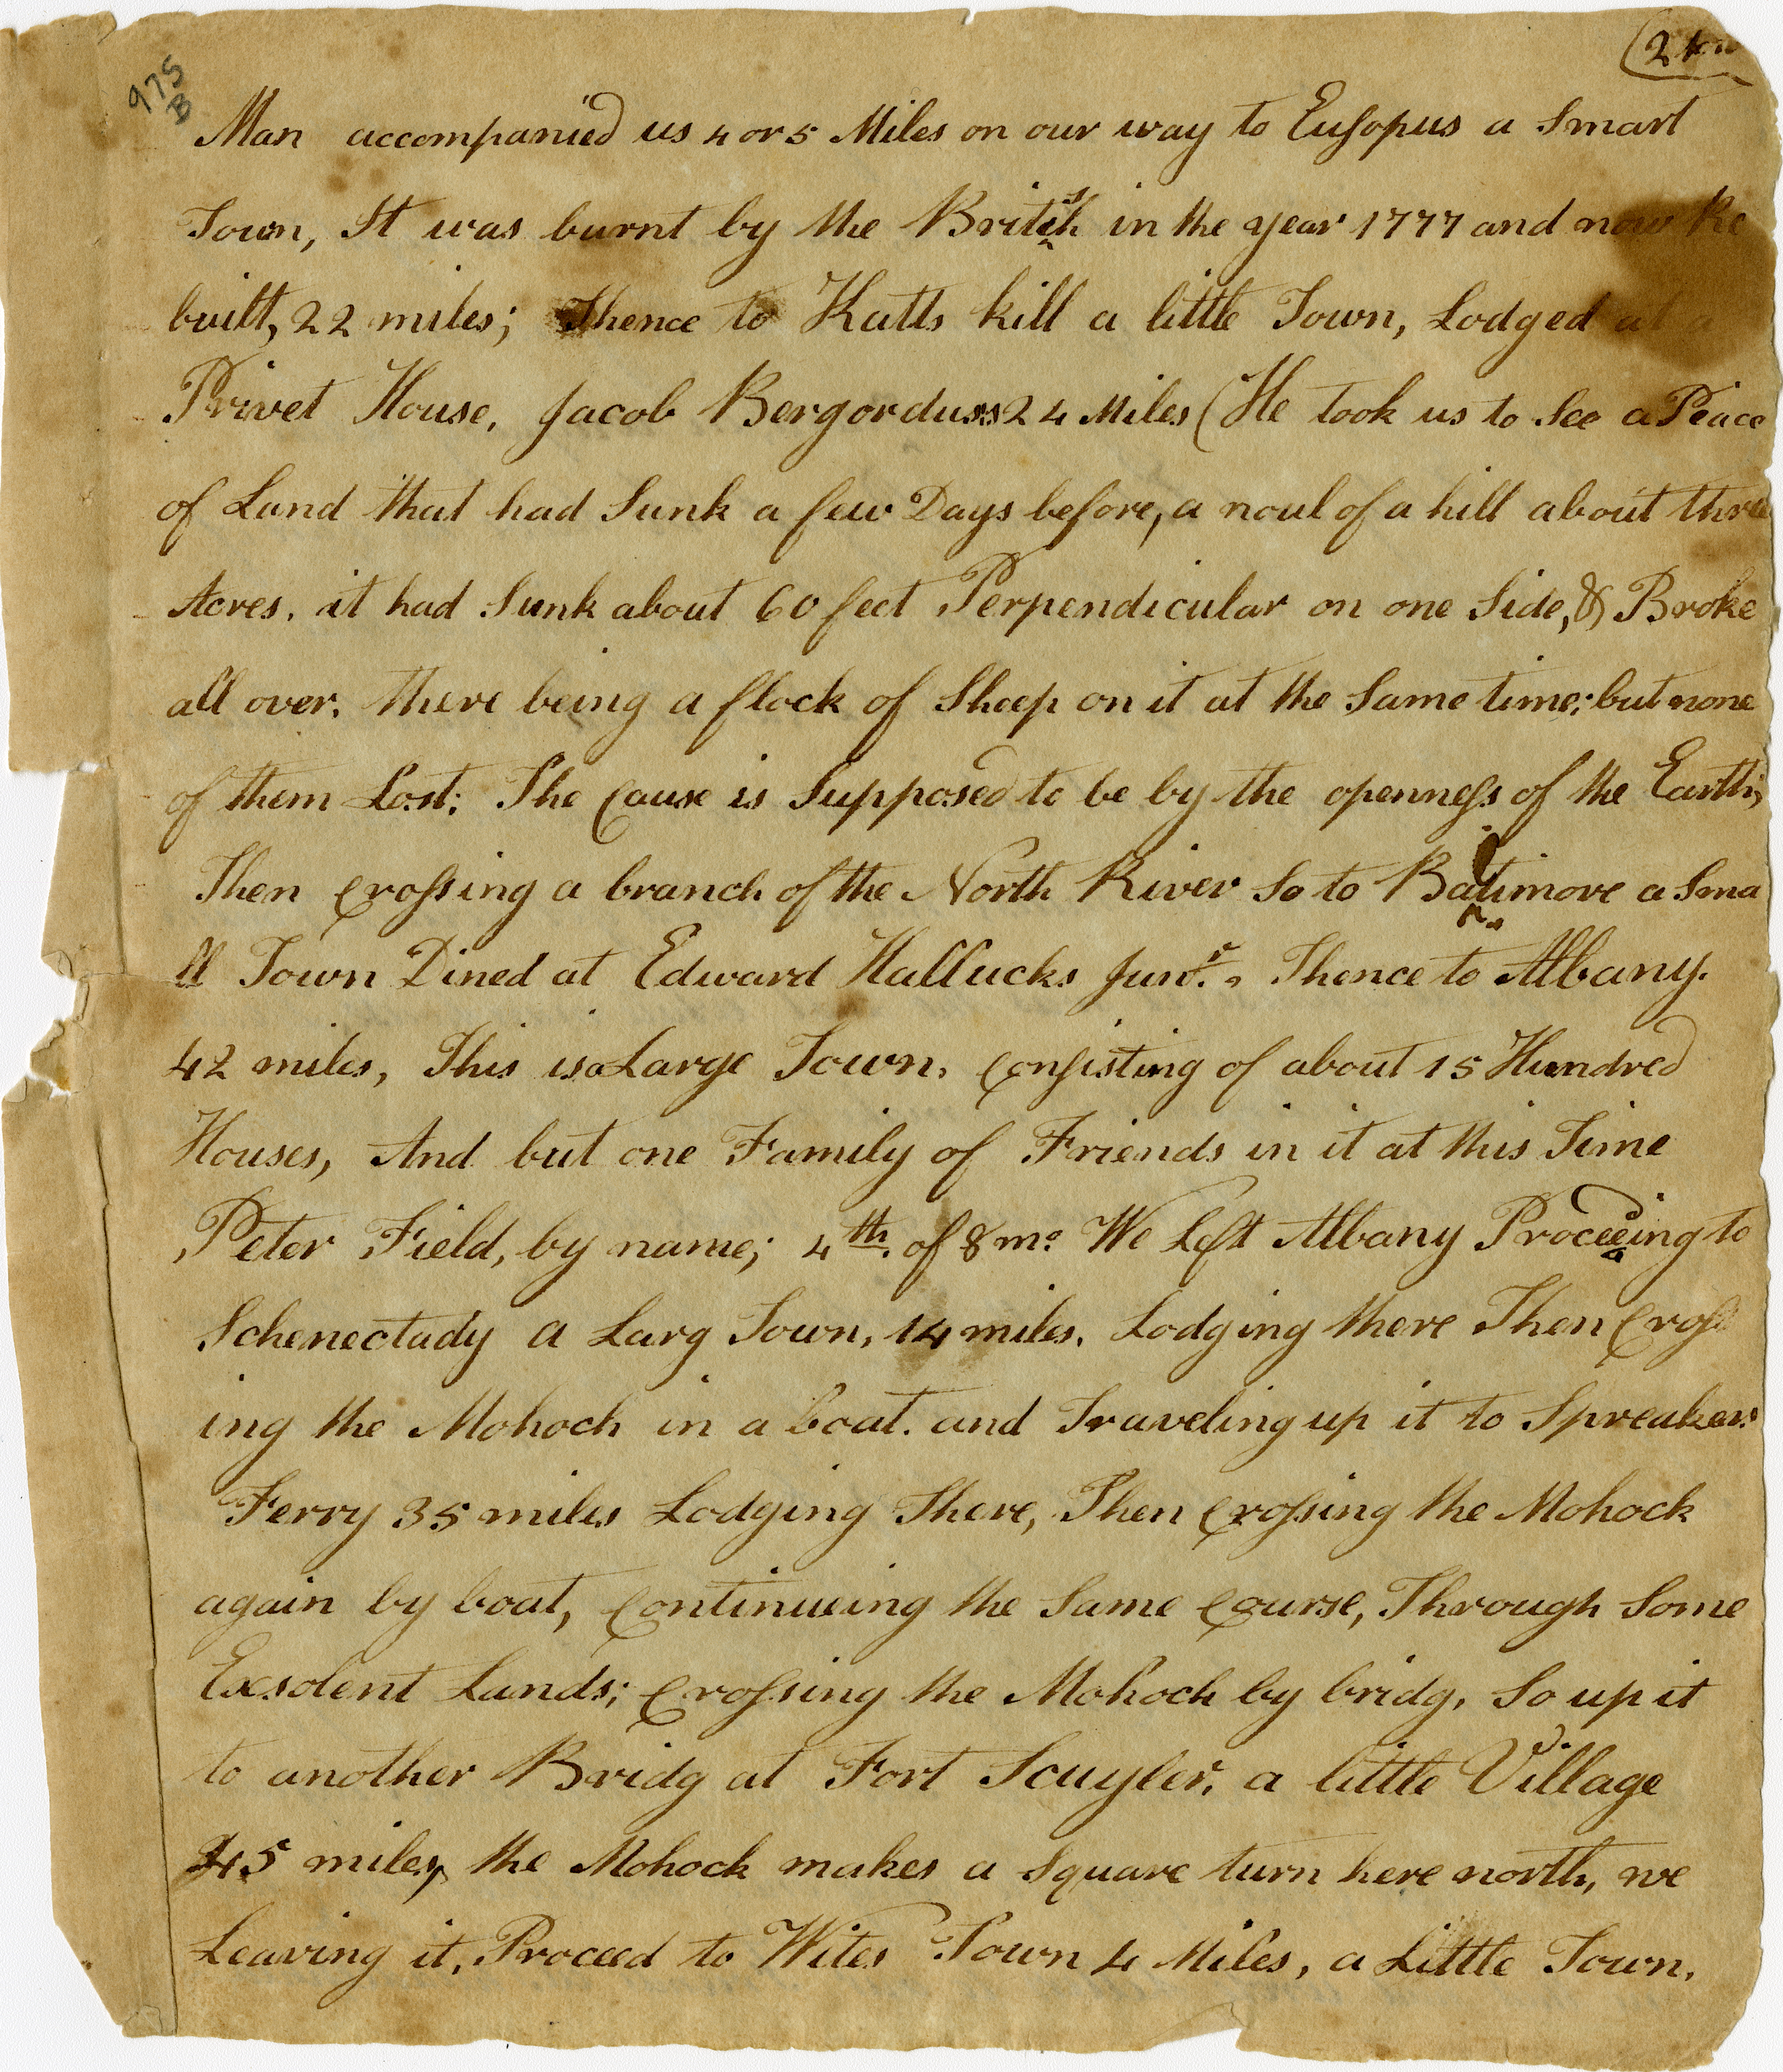 975
B
(2
Man accompanied us 4 or 5 Miles on our way to Eusopus a Smart
Town, It was burnt by the British in the year 1777 and now Re
built, 22 miles; Thence to Katts kill a little Town, Lodged at a
Privet House, Jacob Bergorduss 24 Miles (He took us to See a Peice
of Land that had Sunk a few Days before, a noul of a hill about three
Acres. it had Sunk about 60 feet Perpendicular on one Side, & Broke
all over. there being a flock of Sheep on it at the Same time; but none
of them Lost; The Cause is Supposed to be by the openness of the Earth;
Then Crossing a branch of the North River So to Baltimore a Sma
ll Town Dined at Edward Hallucks Junr. Thence to Albany.
42 miles, This is a Large Town, Consisting of about 15 Hundred
Houses, And but one Family of Friends in it at this Time
Peter Field, by name; 4th. of 8 mo. We Left Albany Proceeding to
Schenectady a Larg Town, 14 miles. Lodging there Then Cross
ing the Mohoch in a boat. and Traveling up it to Spreakers
Ferry 35 miles Lodging There, Then Crossing the Mohock
again by boat, Continueing the Same Course, Through Some
Exsolent Lands; Crossing the Mohoch by bridg, So up it
to another Bridg at Fort Scuyler, a little Village
45 miles, the Mohock makes a Square turn here north, we
Leaving it, Proceed to Wites Town 4 Miles, a Little Town.